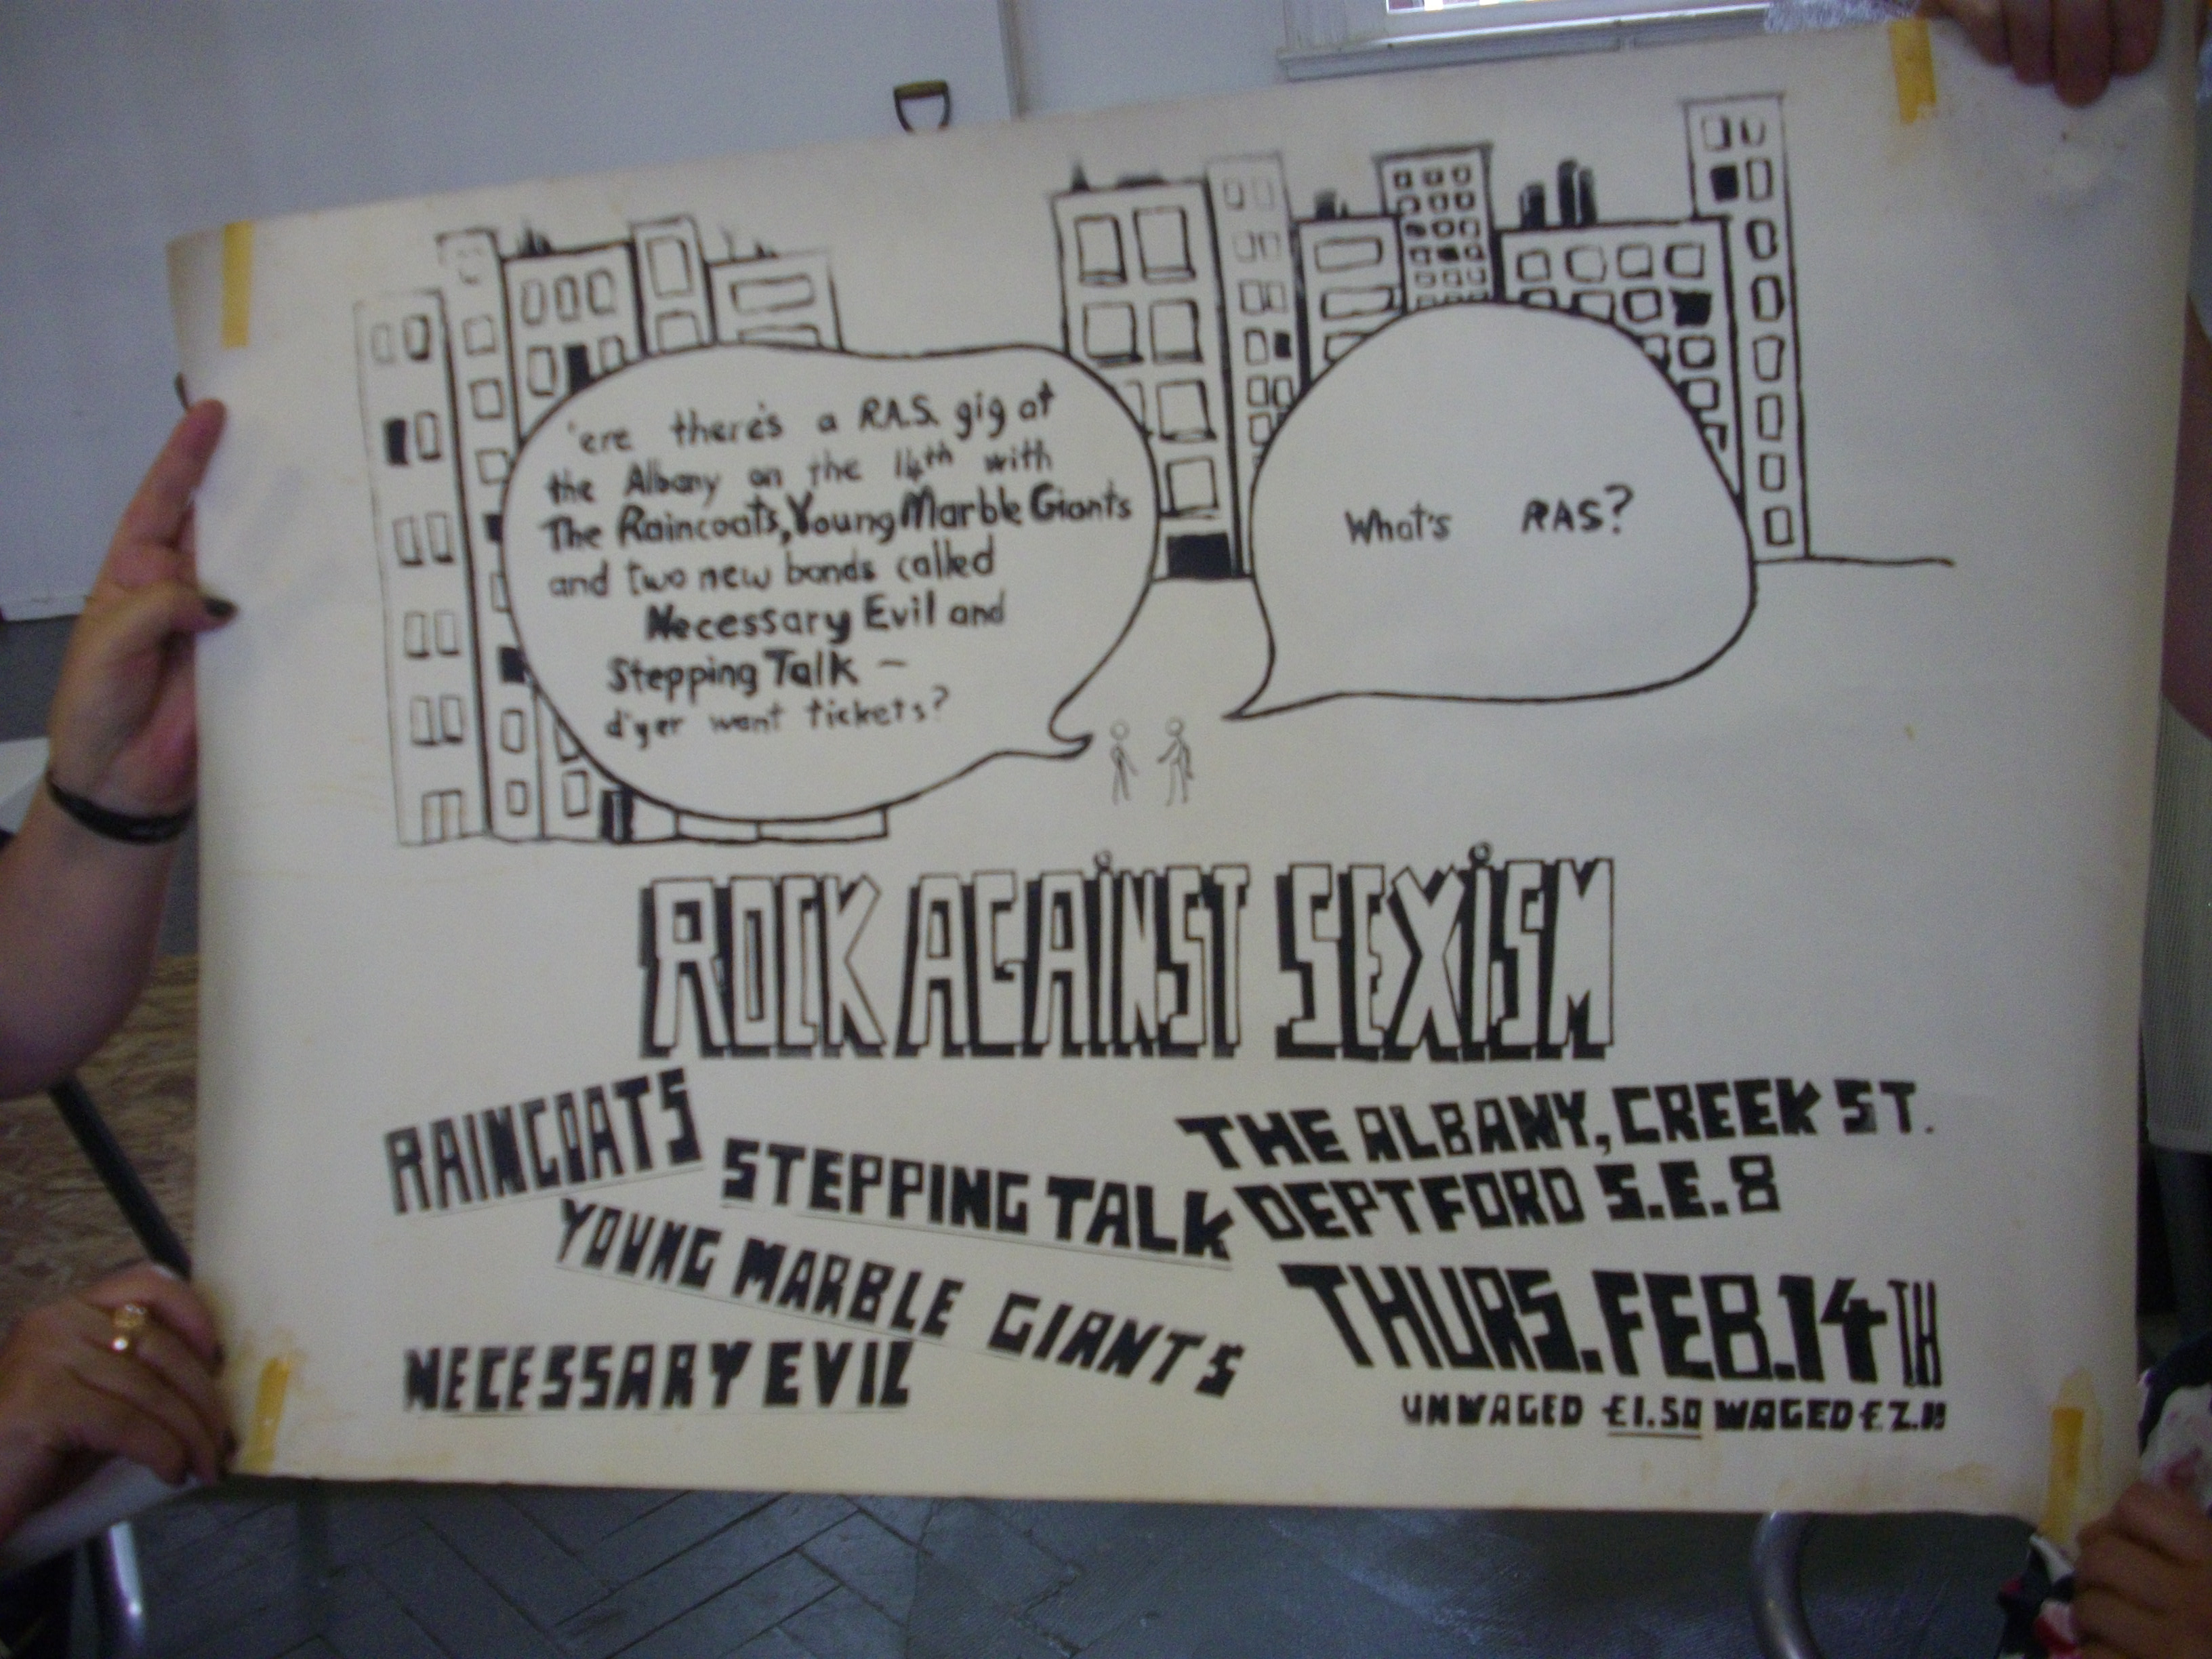 'ere there's a R.A.S. gig at
the Albany on the 14th with
The Raincoats, Young Marble Giants
and two new bands called
Necessary Evil and
Stepping Talk –
d'yer want tickets?
What's RAS?
ROCK AGAiNST SEXiSM
RAINCOATS
STEPPING TALK
YOUNG MARBLE GIANTS
NECESSARY EVIL
THE ALBANY, CREEK ST.
DEPTFORD S.E.8
THURS. FEB. 14TH
UNWAGED £1.50 WAGED £2.00